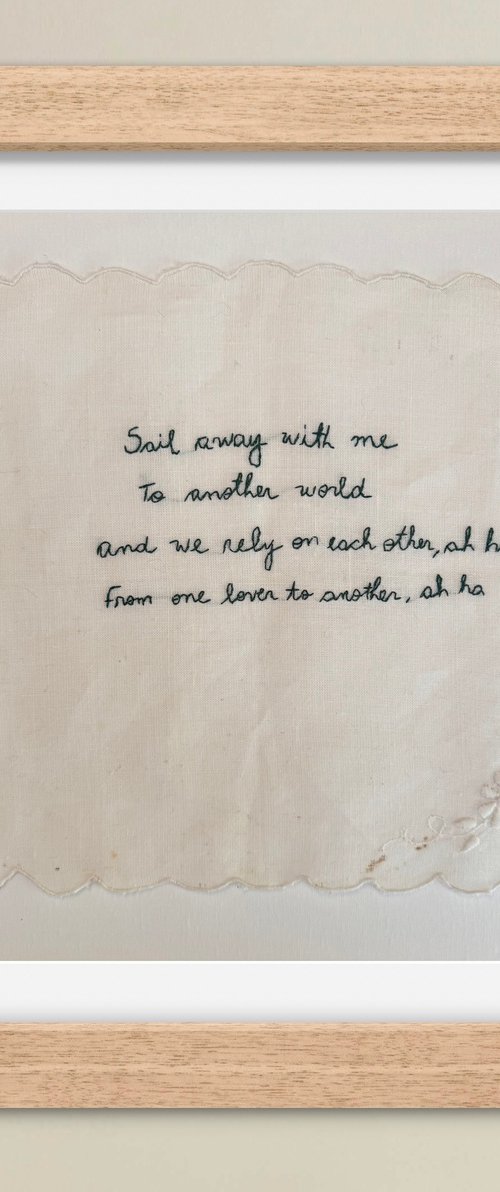 Sail away with me
To another world
and we rely on each other, ah h
From one lover to another, ah ha